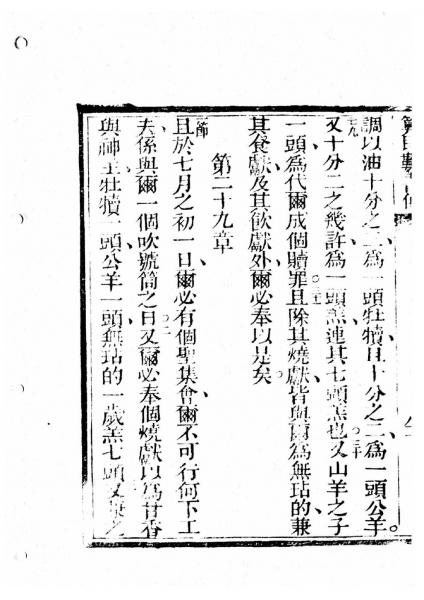 調以油十分之二為一頭牡犢且十分之二為一頭公羊。
又十分二之幾許為一頭羔連其七頭羔也又山羊之子
一頭為代爾成個贖罪且除其燒獻皆與爾為無玷的兼
其食獻及其飲獻外爾必奉以是矣
第二十九章
節且於七月之初一日爾必有個聖集會爾不可行何下工
夫係與爾一個吹號筒之日又爾必奉個燒獻以為甘香
與神主牡犢一頭公羊一頭無玷的一歲羔七頭又兼之